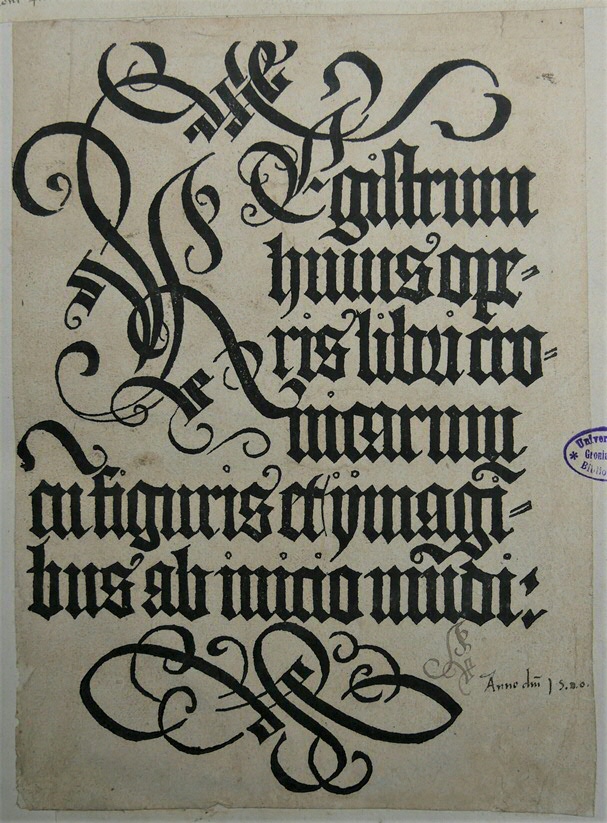 REgistrum
huius ope⸗
ris libri cro⸗
nicarum
cū figuris et ymagī⸗
bus ab inicio mūdi:
Anno dm̄ 1 5.
Univer
Gronin
Bibl